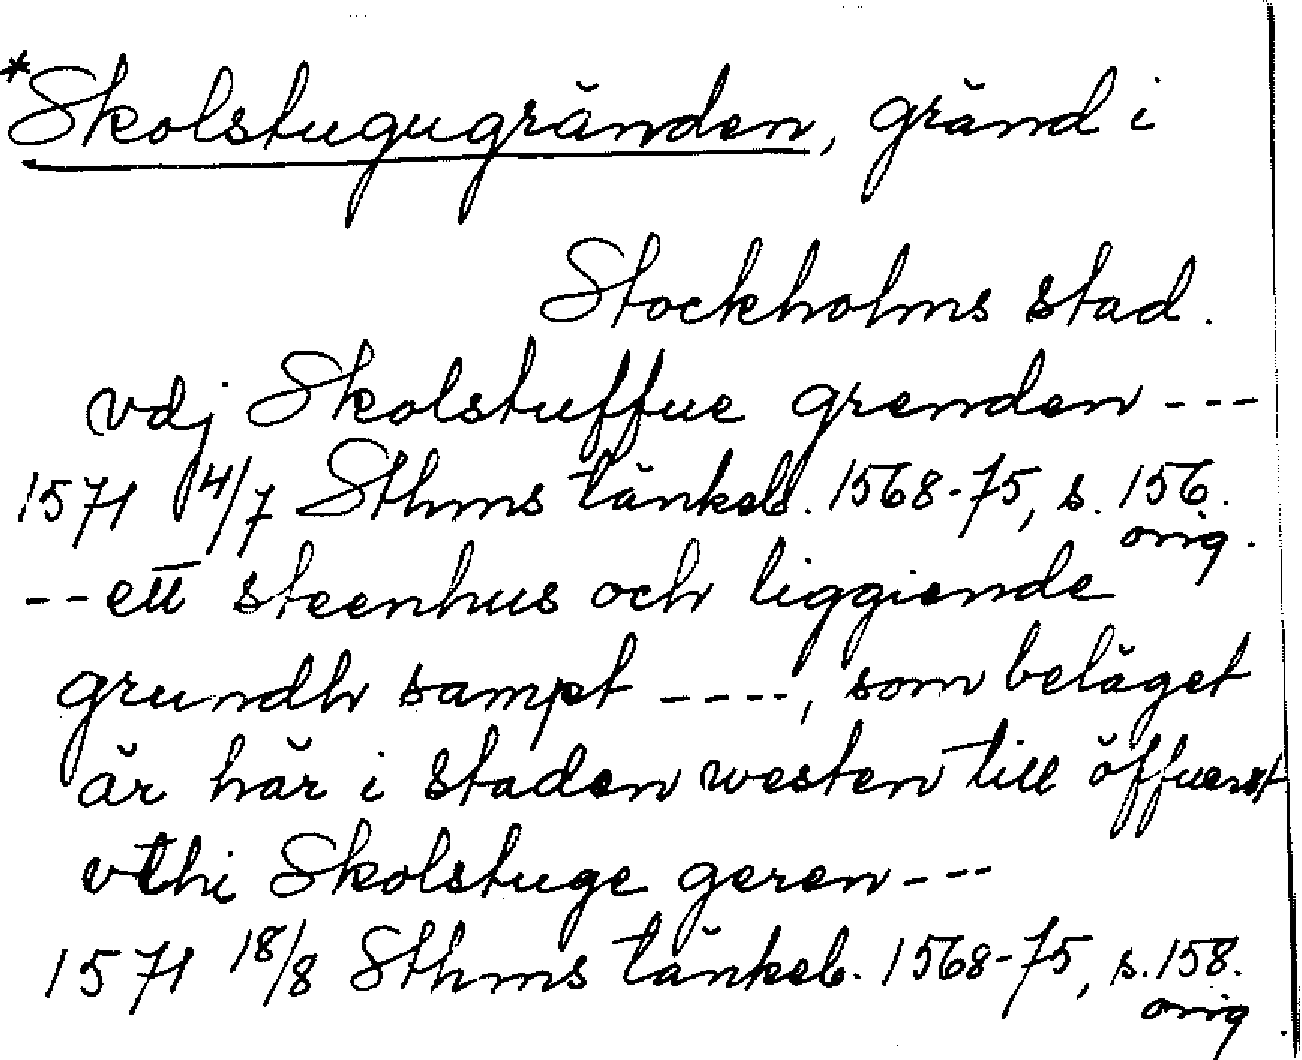 *Skolstugugränden, gränd i
Stockholms stad.
vdj Skolstuffue grenden ---
1571 14/7 Sthms tänkeb. 1568-75, s. 156.
orig.
-- ett steenhus och liggiende
grundh sampt ----, som beläget
är här i staden westen till öffuerst
vthi Skolstuge geren ---
1571 18/8 Sthms tänkeb. 1568-75, s. 158.
orig